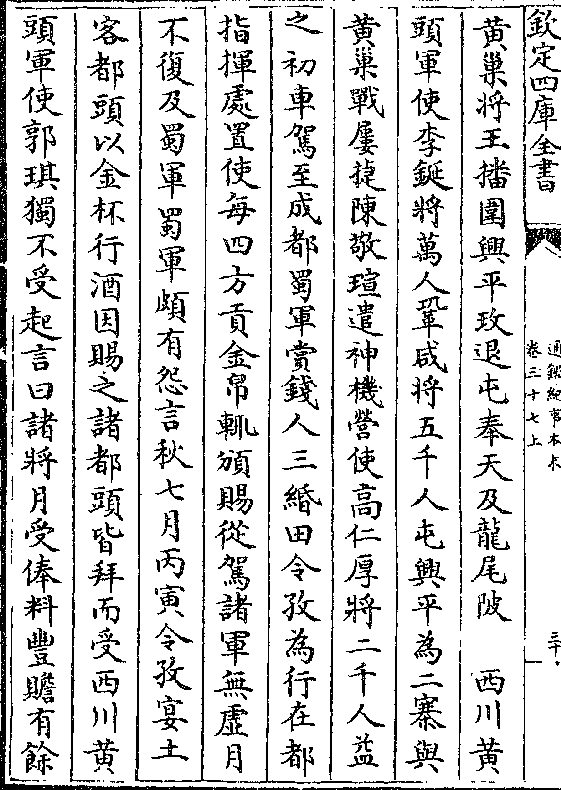 欽定四庫全書
通鑑紀事本末
卷三十七上
三十
黄巢將王播圍興平玫退屯奉天及龍尾陂　西川黄
頭軍使李鋋將萬人鞏咸將五千人屯興平為二寨與
黄巢戰屢捷陳敬瑄遣神機營使高仁厚將二千人益
之　初車駕至成都蜀軍賞錢人三緡田令孜為行在都
指揮處置使每四方貢金帛輒頒賜從駕諸軍無虚月
不復及蜀軍蜀軍頗有怨言秋七月丙寅令孜宴土
客都頭以金杯行酒因賜之諸都頭皆拜而受西川黄
頭軍使郭琪獨不受起言曰諸將月受俸料豐贍有餘